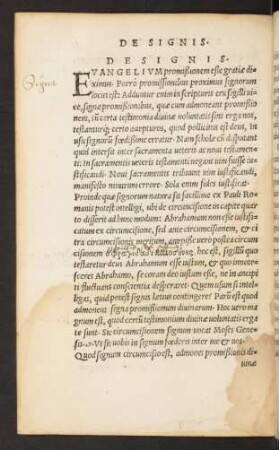 DE SIGNIS.
DE SIGNIS.
Signa
EVANGELIVM promissionem esse gratiæ di
ximus. Porrò promissionibus proximus signorum
locus est: Adduntur enim in scripturis ceu sigilli vi
ce, signa promissionibus, quæ cum admoneant promissio
nem, tum certa testimonia diuinæ voluntatis sint erga nos,
testanturq; certo accepturos, quod pollicitus est deus, in
vsu signorum fœdissime erratur. Nam scholæ cum disputant
quid intersit inter sacramenta veteris ac noui testamen
ti: In sacramentis veteris testamenti negant vim fuisse iu
stificandi: Noui sacramentis tribuunt vim iustificandi,
manifesto nimirum errore. Sola enim fides iustificat.
Proinde quæ signorum natura sit facillime ex Pauli Ro
manis potest intelligi, vbi de circumcisione in capite quar
to disserit ad hunc modum: Abrahamum non esse iustifi
catum ex circumcisione, sed ante circumcisionem, & ci
tra circumcisionis meritum, accepisse vero postea circum
cisionem σφραγίδα δικαιοσύνης hoc est, sigillum quo
testaretur deus Abrahamum esse iustum, & quo nosce
sceret Abrahamus, se coram deo iustum esse, ne in ancipi
ti fluctuans conscientia desperaret. Quem vsum si intel
ligas, quid potest signis lætius contingere? Parum est quod
admoneant signa promissionum diuinarum: Hoc vero ma
gnum est, quod certum testimonium diuinæ voluntatis erga
te sunt. Sic circumcisionem signum vocat Moses Gene
sis. 17. Vt sit vobis in signum fœderis inter me & vos.
Quod signum circumcisio est, admonet promissionis di
uinæ